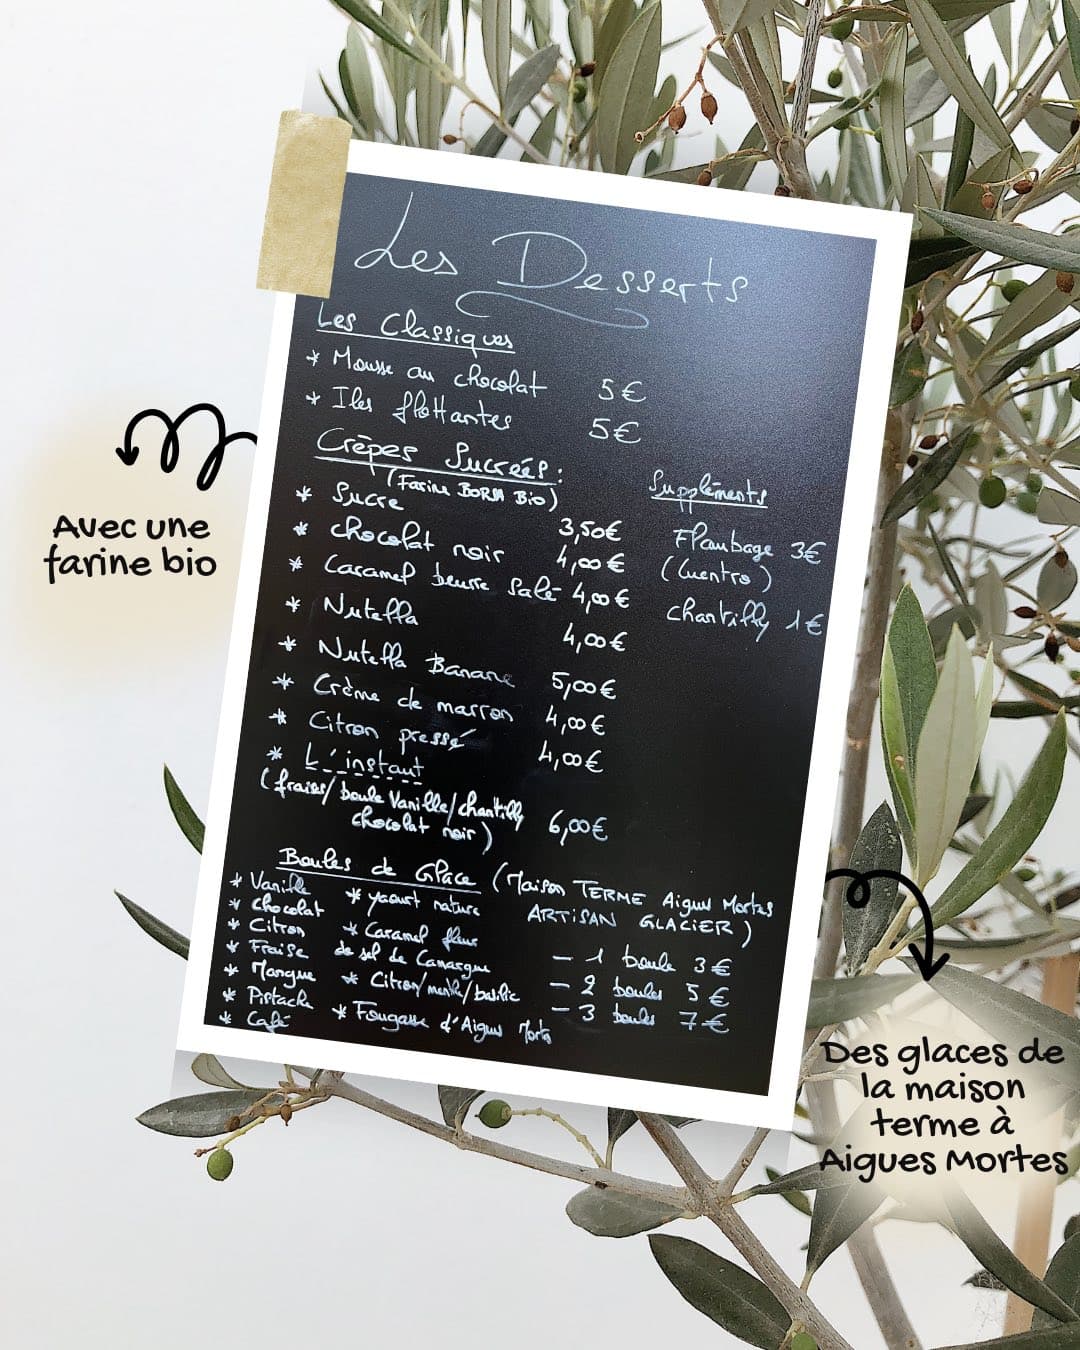 Les Desserts
Les Classiques
* Mousse au chocolat 5€
* Iles flottantes 5€
Crêpes Sucrées:
(Farine BORSA Bio)
* Sucre 3,50€
* chocolat noir 4,00€
* Caramel beurre salé 4,00€
* Nutella 4,00€
* Nutella Banane 5,00€
* Crème de marron 4,00€
* Citron pressé 4,00€
* L'instant
(fraises/boule Vanille/chantilly
chocolat noir) 6,00€
Suppléments
Flambage 3€
(Cuentro)
chantilly 1€
Boules de Glace (Maison TERME Aigues Mortes
ARTISAN GLACIER)
* Vanille
* chocolat
* Citron
* Fraise
* Mangue
* Pistache
* Café
* yaourt nature
* Caramel fleur
de sel de Camargue
* Citron/menthe/basilic
* Fougasse d'Aigues Mortes
- 1 boule 3€
- 2 boules 5€
- 3 boules 7€
Avec une
farine bio
Des glaces de
la maison
terme à
Aigues Mortes